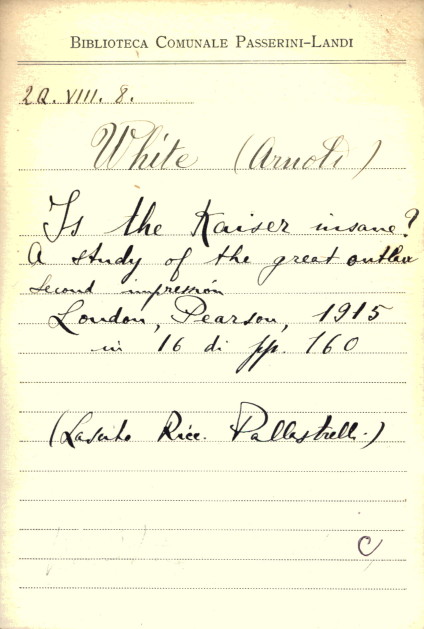 BIBLIOTECA COMUNALE PASSERINI-LANDI
2Q. VIII. 8.
White (Arnold)
Is the Kaiser insane?
A study of the great outlaw
second impression
London, Pearson, 1915
in 16 di pp. 160
(Lascito Ricc. Pallastrelli.)
C